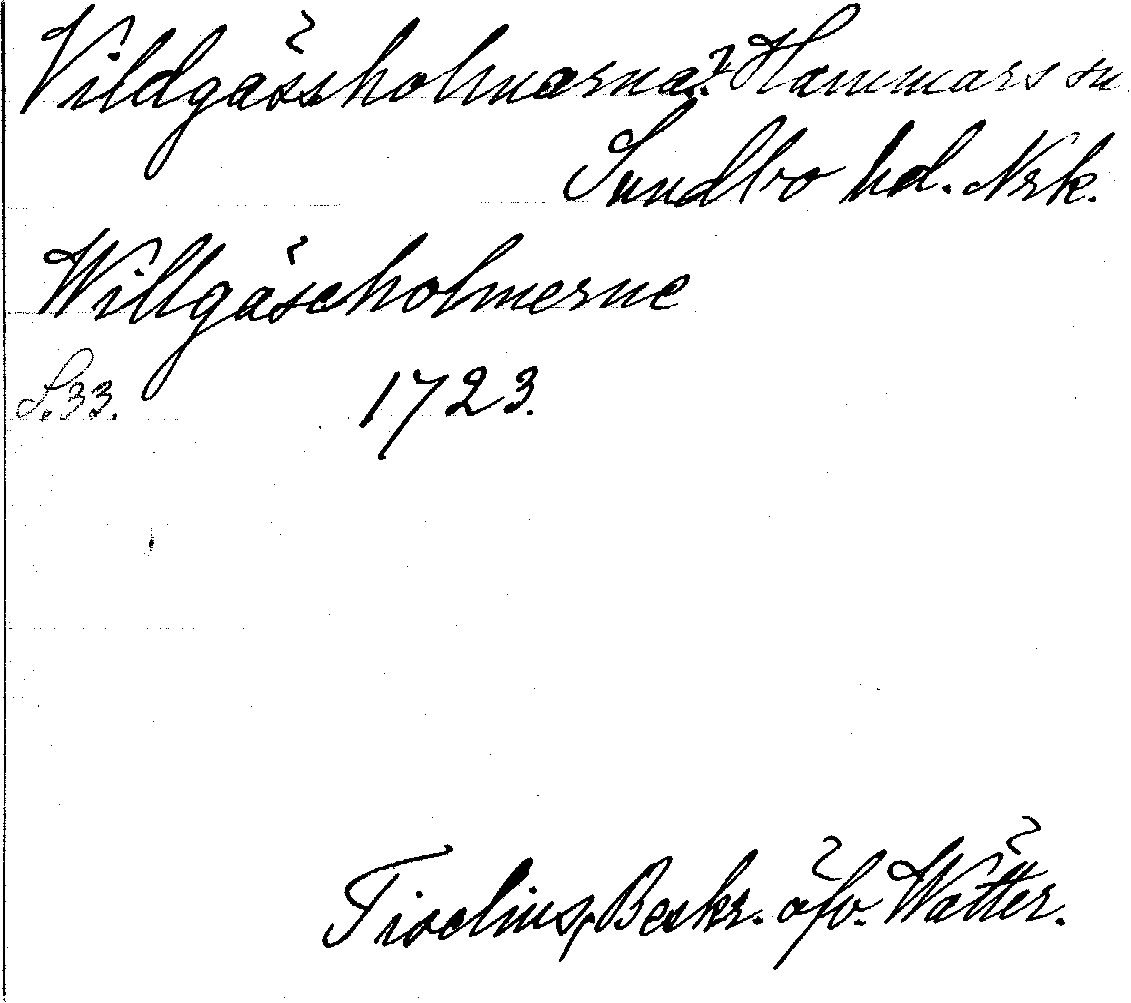 Vildgässholmarna? Hammars sn
Sundbo hd. Nrk.
Willgäseholmerne
S.33. 1723.
Tiselius, Beskr. öfv. Wätter.